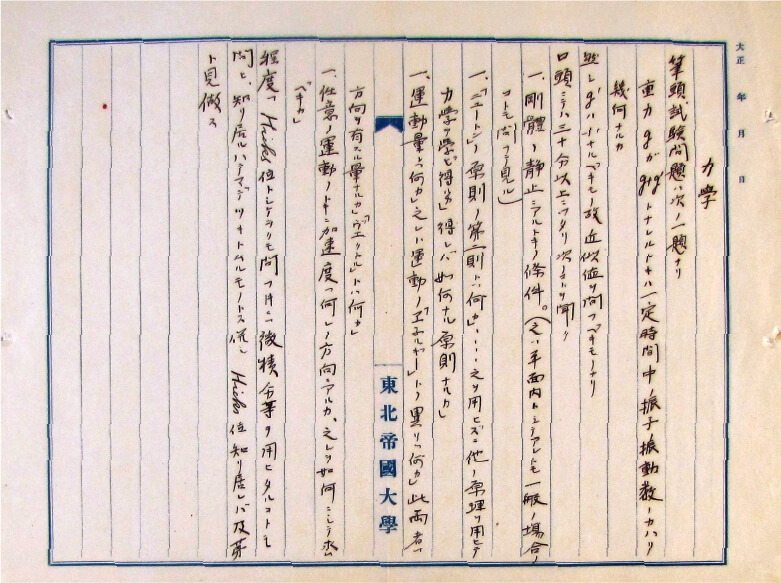 大正 年 月 日
力學
筆頭試験問題ハ次ノ一題ナリ
重力gガg+g'トナレルトキハ一定時間中ノ振子振動数ノカハリ
幾何ナルカ
然シg'ハ小ナルベキモノ故近似値ヲ問フベキモノナリ
口頭ニテハ三十分以上ニワタリ次ノコトヲ聞ク
一、剛體ノ静止ニアルトキノ條件。(之ハ平面内トシテアレドモ一般ノ場合ノ
コトモ問フテ見ル)
一、「ニュートン」ノ原則ノ第三則トハ何カ」・・・之ヲ用ヒズニ他ノ原理ヲ用ヒテ
力學ヲ學ビ得ルカ」得レバ如何ナル原則ナルカ」
一、運動量トハ何カ」之レト運動ノ「エネルギー」トノ異リハ何カ」此両者ハ
東北帝國大學
方向ヲ有スル量ナルカ」「ヴェクトル」トハ何カ」
一、任意ノ運動ノトキニ加速度ハ何レノ方向ニアルカ、之レヲ如何ニシテ求ム
ベキカ」
程度ハHicks位トシテ 問フ 微積分等ヲ用ヒタルコトモ
問ヒ、知リ居ル Hicks位知リ居レバ及第
ト見做ス